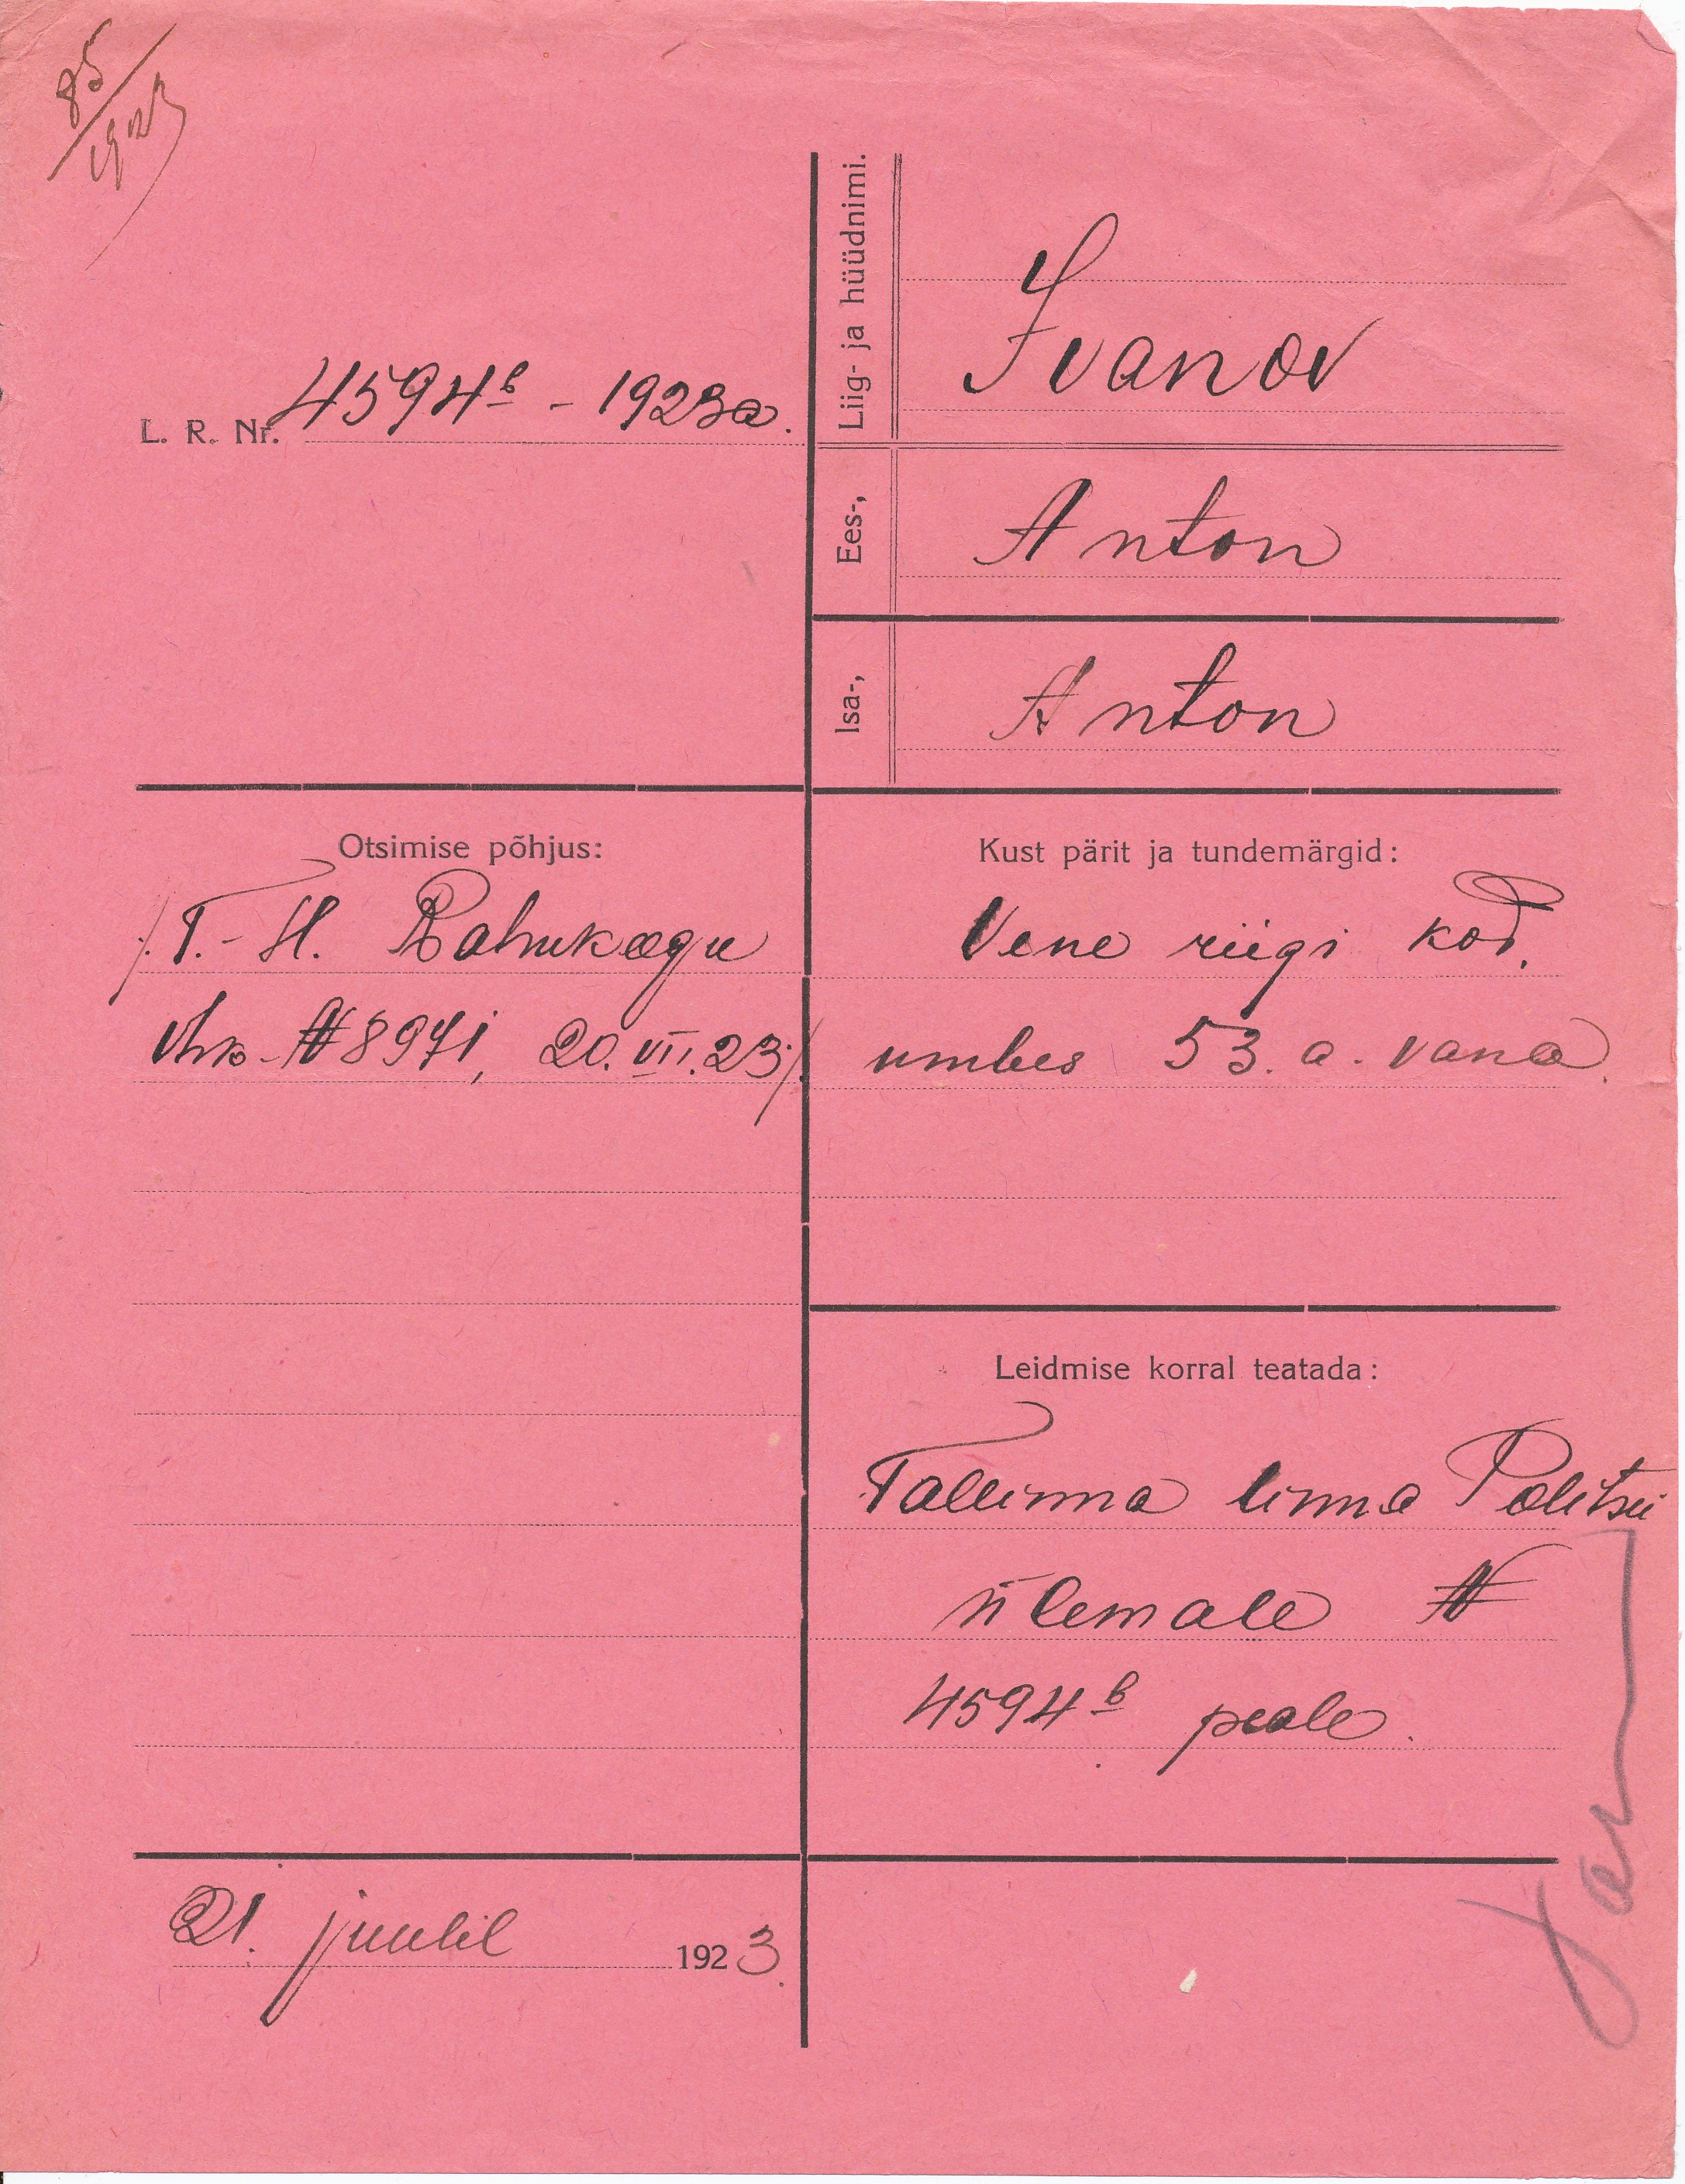 85/1923
L. R. Nr. 4594ᵇ - 1923a.
Liig- ja hüüdnimi.
Ivanov
Ees-,
Anton
Isa-,
Anton
Otsimise põhjus:
/. T.-H. Rahukogu
№ 8971, 20.VII.23 ./.
Kust pärit ja tundemärgid:
Vene riigi kod.
umbes 53. a. vana.
Leidmise korral teatada:
Tallinna linna Politsei
ülemale №
4594ᵇ peale.
21. juulil 1923.